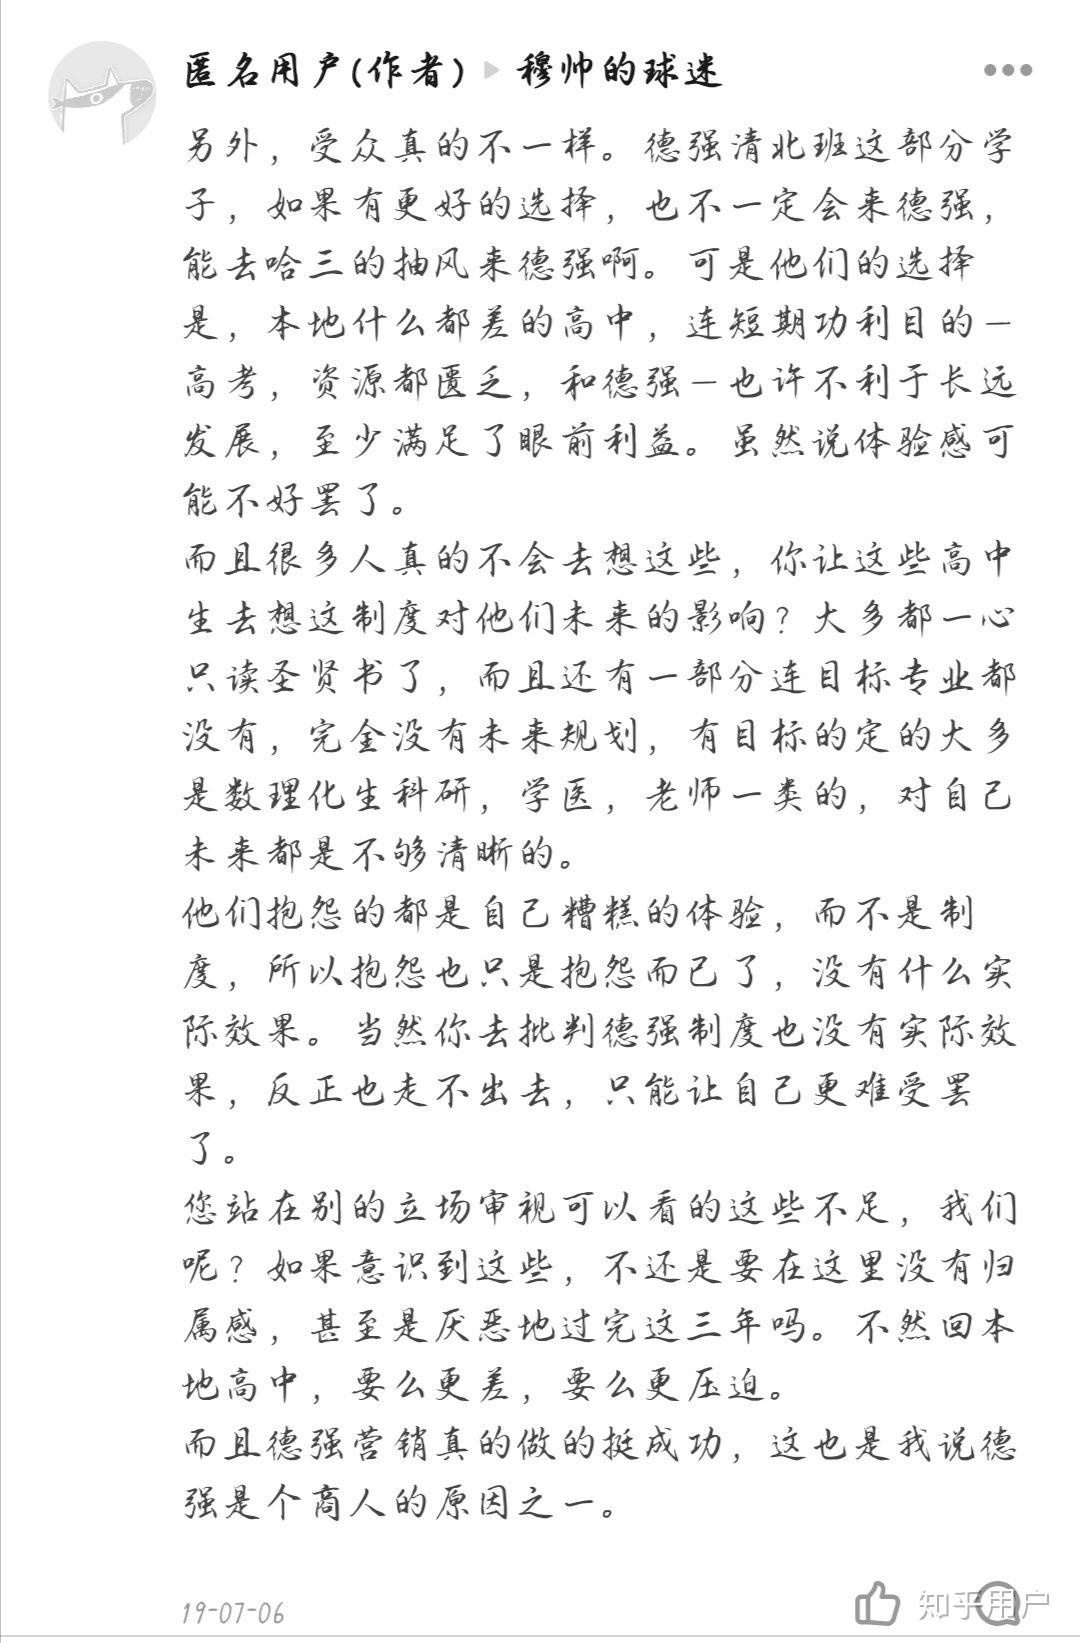 匿名用户(作者) ▶ 穆帅的球迷
另外，受众真的不一样。德强清北班这部分学
子，如果有更好的选择，也不一定会来德强，
能去哈三的抽风来德强啊。可是他们的选择
是，本地什么都差的高中，连短期功利目的—
高考，资源都匮乏，和德强—也许不利于长远
发展，至少满足了眼前利益。虽然说体验感可
能不好罢了。
而且很多人真的不会去想这些，你让这些高中
生去想这制度对他们未来的影响？大多都一心
只读圣贤书了，而且还有一部分连目标专业都
没有，完全没有未来规划，有目标的定的大多
是数理化生科研，学医，老师一类的，对自己
未来都是不够清晰的。
他们抱怨的都是自己糟糕的体验，而不是制
度，所以抱怨也只是抱怨而已了，没有什么实
际效果。当然你去批判德强制度也没有实际效
果，反正也走不出去，只能让自己更难受罢
了。
您站在别的立场审视可以看的这些不足，我们
呢？如果意识到这些，不还是要在这里没有归
属感，甚至是厌恶地过完这三年吗。不然回本
地高中，要么更差，要么更压迫。
而且德强营销真的做的挺成功，这也是我说德
强是个商人的原因之一。
19-07-06
知乎用户